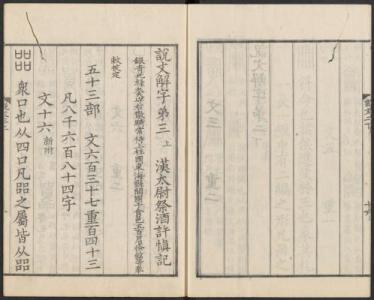 說文解字弟三 上 漢太尉祭酒許愼記
銀青光祿大夫守右散騎常侍上柱國東海縣開國子食邑五百戶臣徐鉉等奉
敕校定
五十三部 文六百三十七 重百四十三
凡八千六百八十四字
文十六 新附
㗊 衆口也从四口凡㗊之屬皆从㗊